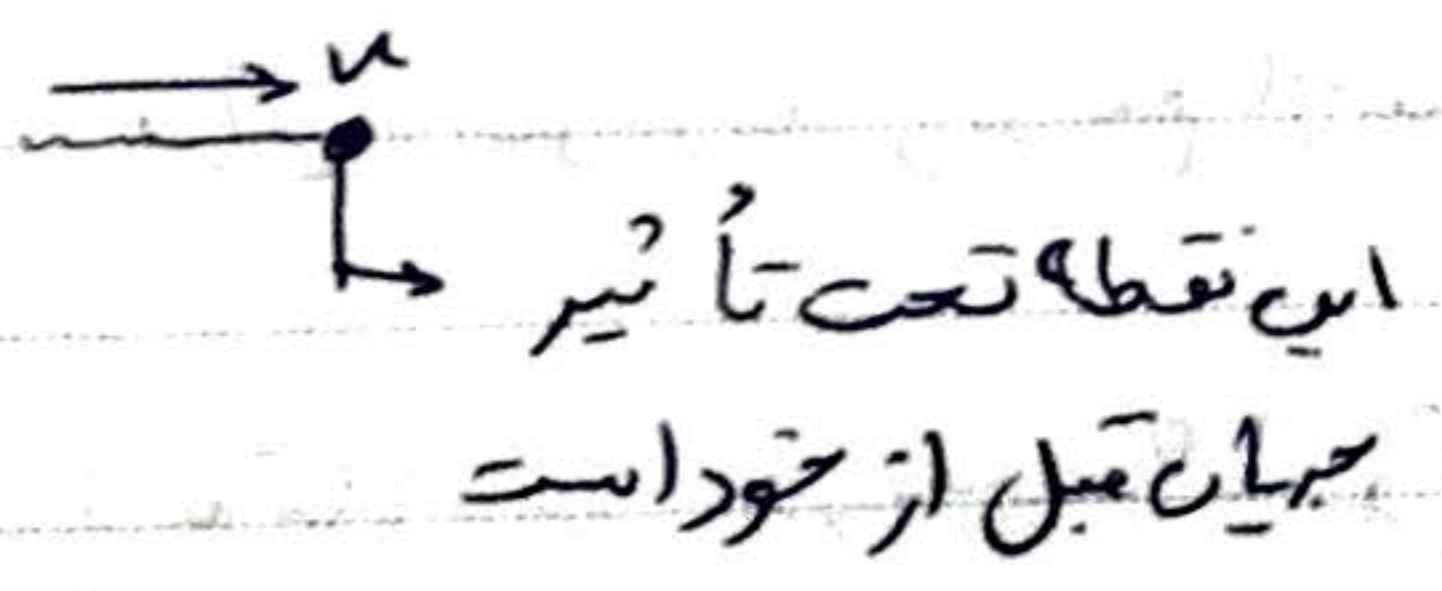 u
این نقطه تحت تأثیر
جریان قبل از خود است